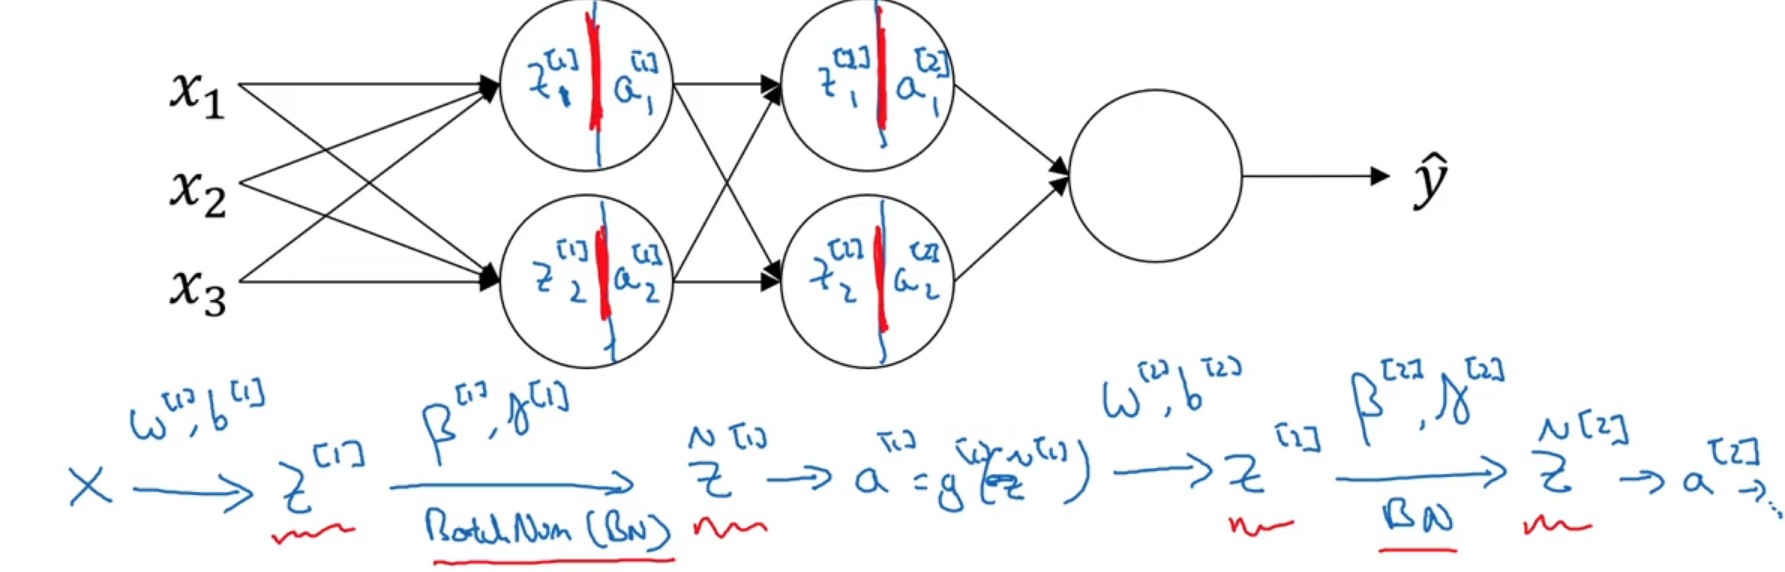 x₁
x₂
x₃
z₁^[1] a₁^[1]
z₂^[1] a₂^[1]
z₁^[2] a₁^[2]
z₂^[2] a₂^[2]
ŷ
X →^(w^[1], b^[1]) z^[1] →^(β^[1], γ^[1])_(Batch Norm (BN)) z̃^[1] → a^[1] = g^[1](z̃^[1]) →^(w^[2], b^[2]) z^[2] →^(β^[2], γ^[2])_(BN) z̃^[2] → a^[2] → ...